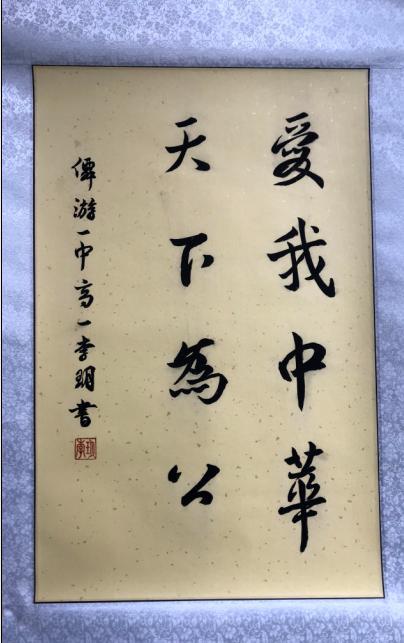 愛我中華
天下為公
僊游一中高一李玥書